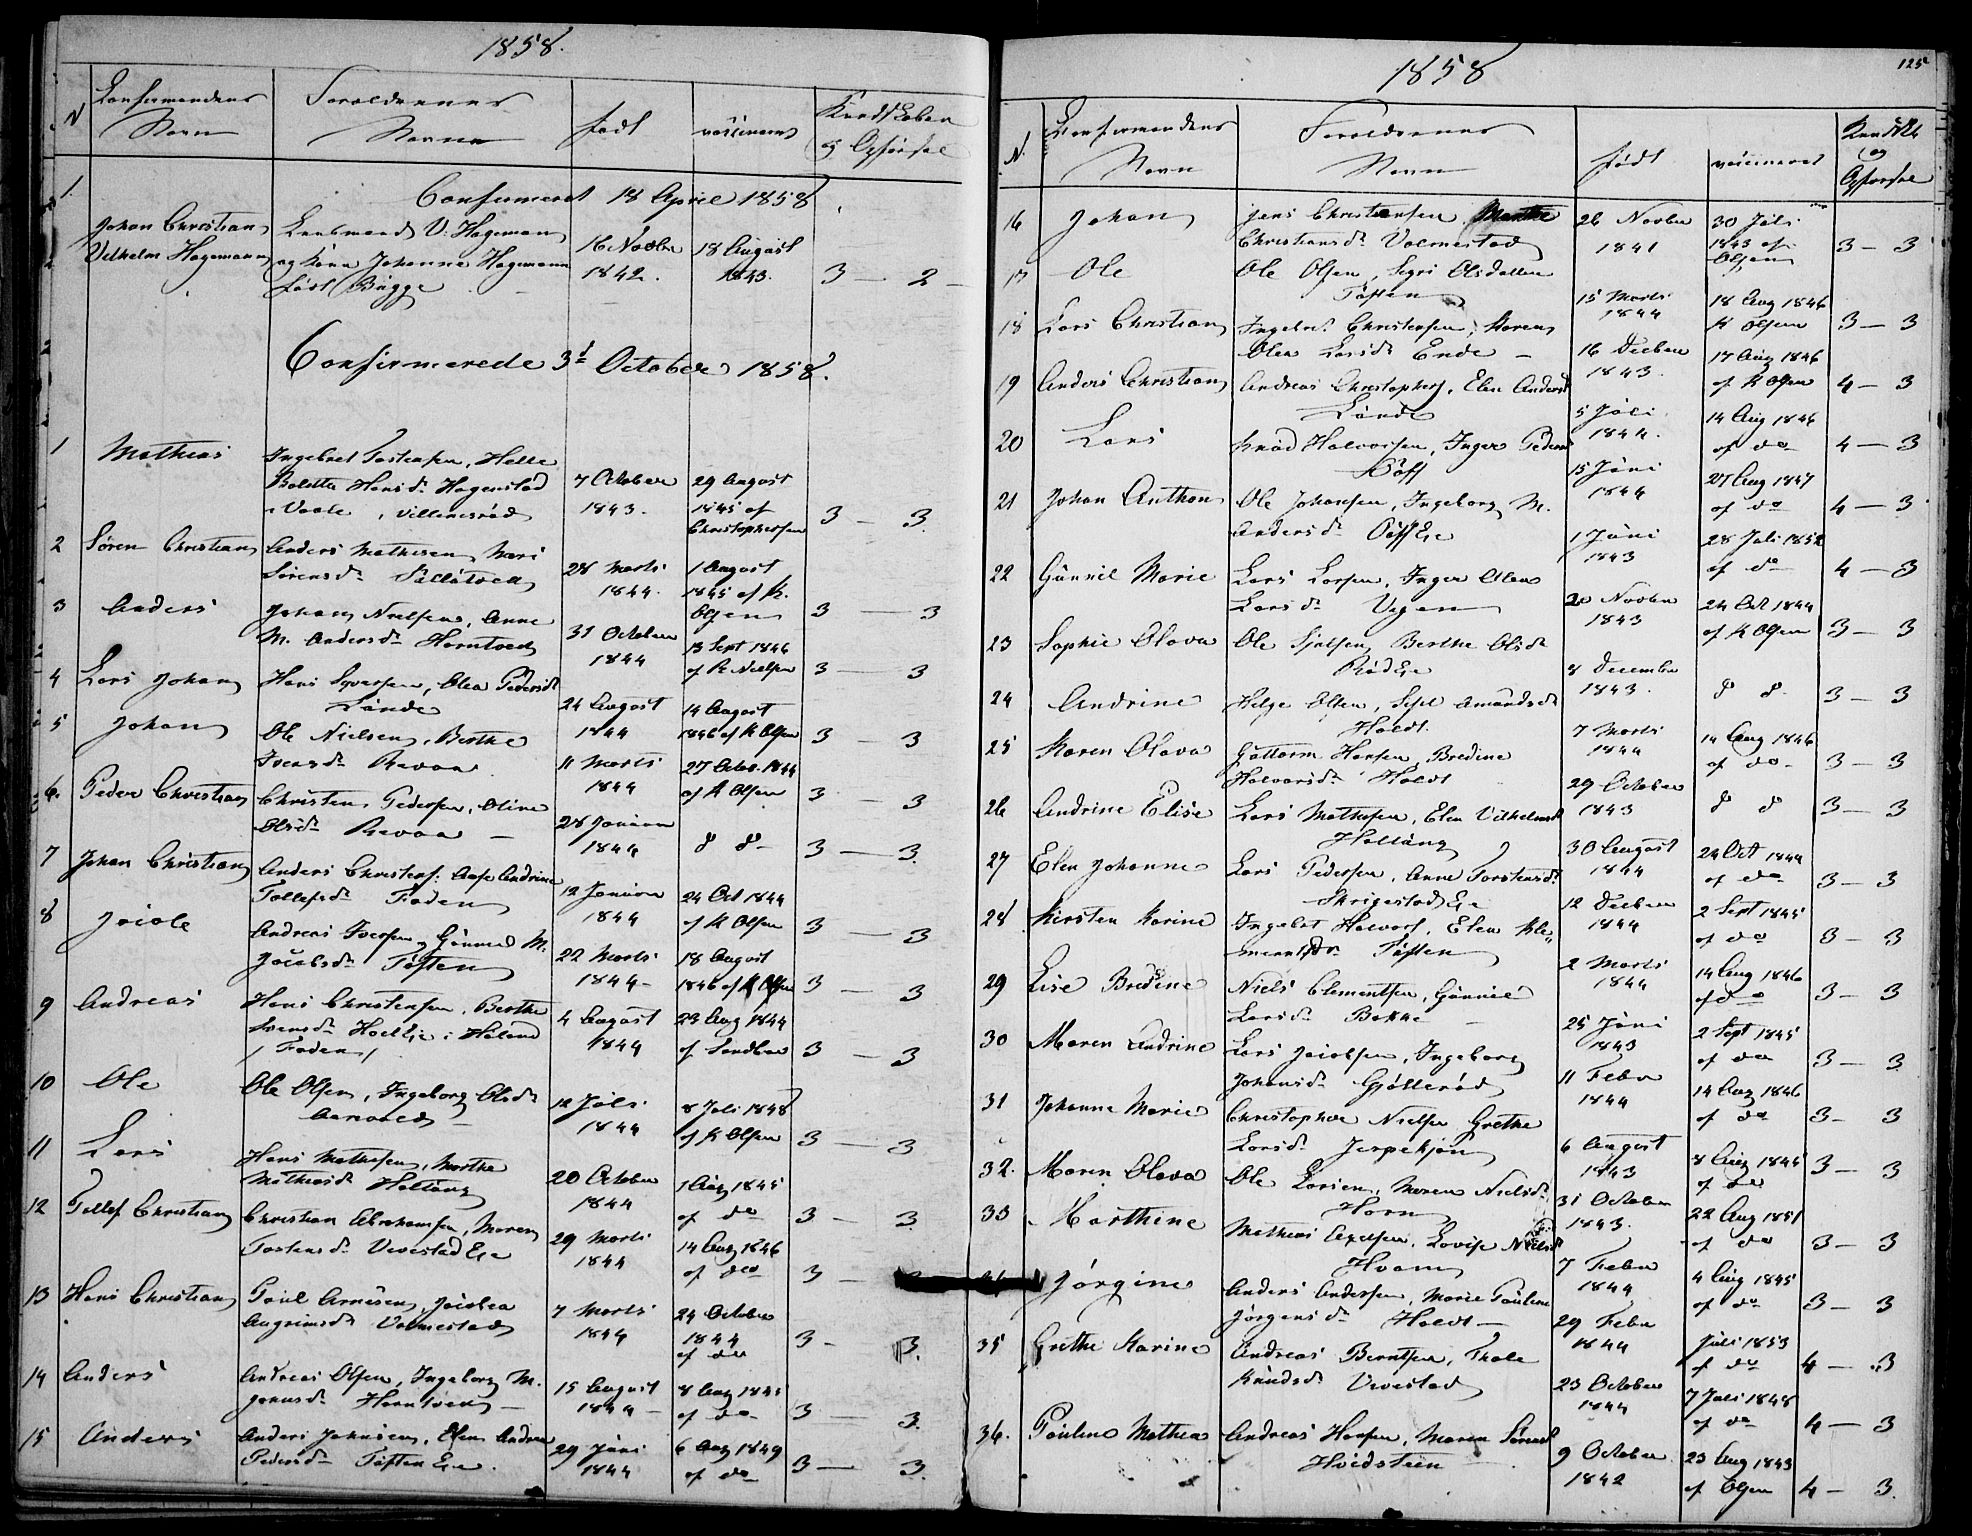 1858.
N Confirmandens Navn Forældrenes Navne født vaccineret Kundskaber og Opførsel
Confirmeret 18 April 1858
1. Johan Christian Lensmand V. Hagemann
Vilhelm Hagemann og Kone Johanne Hagemann 16 Novbr 18 August
født Bugge 1842. 1843. 3 — 2
Confirmerede 3d October 1858.
1 Mathias Ingebret Tostensen, Helle
Bolette Hansd. Hagenstad 7 October 29 August
1843. 1845 af
Christophersen 3 — 3
2 Søren Christian Anders Mathisen, Mari
Sørensd. 28 Marts 1 August
1844. 1845 af K.
Olsen 3 — 3
3 Anders Johan Nielsen, Anne
M. Andersd. Horntvedt 31 October 13 Sept 1846
1844 af R Nielsen 3 — 3
4 Lars Johan Hans Syversen, Olea Pedersd
Lunde 24 August 14 August
1844 1846 af K Olsen 3 — 3
5 Johan Ole Nielsen, Berthe
Iversd. Revaa 11 Marts 27 Octbr. 1844
1844 af K Olsen 3 — 3
6. Peder Christian Christen Pedersen, Oline
Olsd. Revaa — 28 Januar
1844 d d — 3 — 3.
7 Johan Christian Anders Christens. Aase Andrine
Tollefsd. Foden 12 Januar 24 Oct 1844
1844 af K Olsen 3 — 3
8 Jacob Andreas Iversen, Gunnild M.
Jacobsd. Tuften 22 Marts 18 August
1844 — 1846 af K Olsen 3 — 3
9 Andreas Hans Christensen, Berthe
Svensd. i Høland 4 August 23 Aug 1844
/ Foden / 1844 af Sandboe 3 — 3
10 Ole Ole Olsen, Ingeborg Olsd.
12 Juli 8 Juli 1848
1844 af K Olsen 3 — 3
11 Lars Hans Mathisen, Marthe
Mathiasd. Holtung 20 October 1 Aug 1845
1844 af do 3 — 3
12 Tollef Christian Christian Abrahamsen, Maren
Tostensd. Vevestad Eje 29 Marts 14 Aug 1846
1844 af do 3 —
13 Hans Christian Poul Arnesen, Jacobea
Angrimsd. Valmestad 7 Marts 24 October
1844 1844
af do 3 — 3.
14 Anders Andreas Olsen, Ingeborg M.
Horntvedt — 15 August 8 Aug 1845
1844 — af do 3 — 3.
15 Anders Anders Johnsen, Elen Andrea
Pedersd. Tuften Eje. 29 Juni 6 Aug 1849
1844 af do 3 — 3.
125
1858
N. Confirmandens Navn Forældrenes Navn født vaccineret Kundsk og Opførsel
16 Johan Jens Christensen, Marthe 26 Novbr 30 Juli
Christiansd. Valmestad 1841 1843 af
Olsen 3 — 3
17 Ole Ole Olsen, Segri Olsdatter
Tuften 15 Marts 18 Aug 1846
1844 K Olsen 3 — 3
18 Lars Christian Ingebret Christensen, Karen
Olea Larsd. Ende — 16 Decbr 17 Aug 1846
1843. af K Olsen 4 — 3
19 Anders Christian Andreas Christophers, Elen Andersd
Lunde 5 Juli 14 Aug 1846
1844. af do 4 — 3
20 Lars Knud Halvorsen, Inger Peders
15 Juni 27 Aug 1847
1844 af do 4 — 3
21 Johan Anthon Ole Johansen, Ingeborg M.
Andersd. 1 Juni 28 Juli 1852
1843 af do 4 — 3
22 Gunnil Marie Lars Larsen, Inger Olea
Larsd. Vegen 20 Novbr 24 Oct 1844
1843 af K Olsen 3 — 3
23 Sophie Olava Ole Berthe Olsd.
Rød Eje 8 Decembr
1843. d d. 3 — 3
24 Andrine Helge Olsen, Amundsd
Holdt. 7 Marts 14 Aug 1846
1844 af do — 3 — 3
25 Karen Olava Guttorm Hansen, Bredine
Halvorsd. Holdt 29 October
1843 d d 3 — 3
26 Andrine Elise Lars Mathisen, Elen Vilhelmsd
Holtung 30 August 24 Oct 1844
1844 af do 3 — 3
27 Elen Johanne Lars Pedersen, Anne Torstensd.
Skrigestad Eje 12 Decbr 2 Sept 1845
1844 af do 3 — 3
28 Kirsten Karine Ingebr Halvors, Elen Kle-
mentsdr. Tuften 2 Marts 14 Aug 1846
1844 af do 3 — 3
29 Lise Bredine Niels Clementsen, Gunnil
Larsd. Bakke — 25 Juni 2 Sept 1845
1843 af do 3 — 3
30 Maren Andrine Lars Jacobsen, Ingeborg
Johansd. Gjøllerød 11 Febr 14 Aug 1846
1844 af do 3 — 3
31 Johanne Marie Christopher Nielsen Grethe
Larsd. 6 August 8 Aug 1845
1843 af do 3 — 3
32. Maren Olava Ole Larsen, Maren Nielsd.
Horn 31 October 22 Aug 1851
1843. af do 3 — 3
33 Marthine Mathias Axelsen, Lovise Nielsd
Hvam 7 Febr 4 Aug 1845
1844 af do 3 — 3
Jørgine Anders Andersen, Marie Pauline
Jørgensd. Holdt — 29 Febr Juli 1853
1844 af do 4 — 3
35 Grethe Karine Andreas Berntsen, Thale
Knudsd. Vevestad 23 October 7 Juli 1848
1844 af do 4 — 3
36. Pauline Mathea Andreas Hansen, Maren Sørensd
Hvidsteen 9 October 23 Aug 1843
1842 af Olsen 4 — 3.